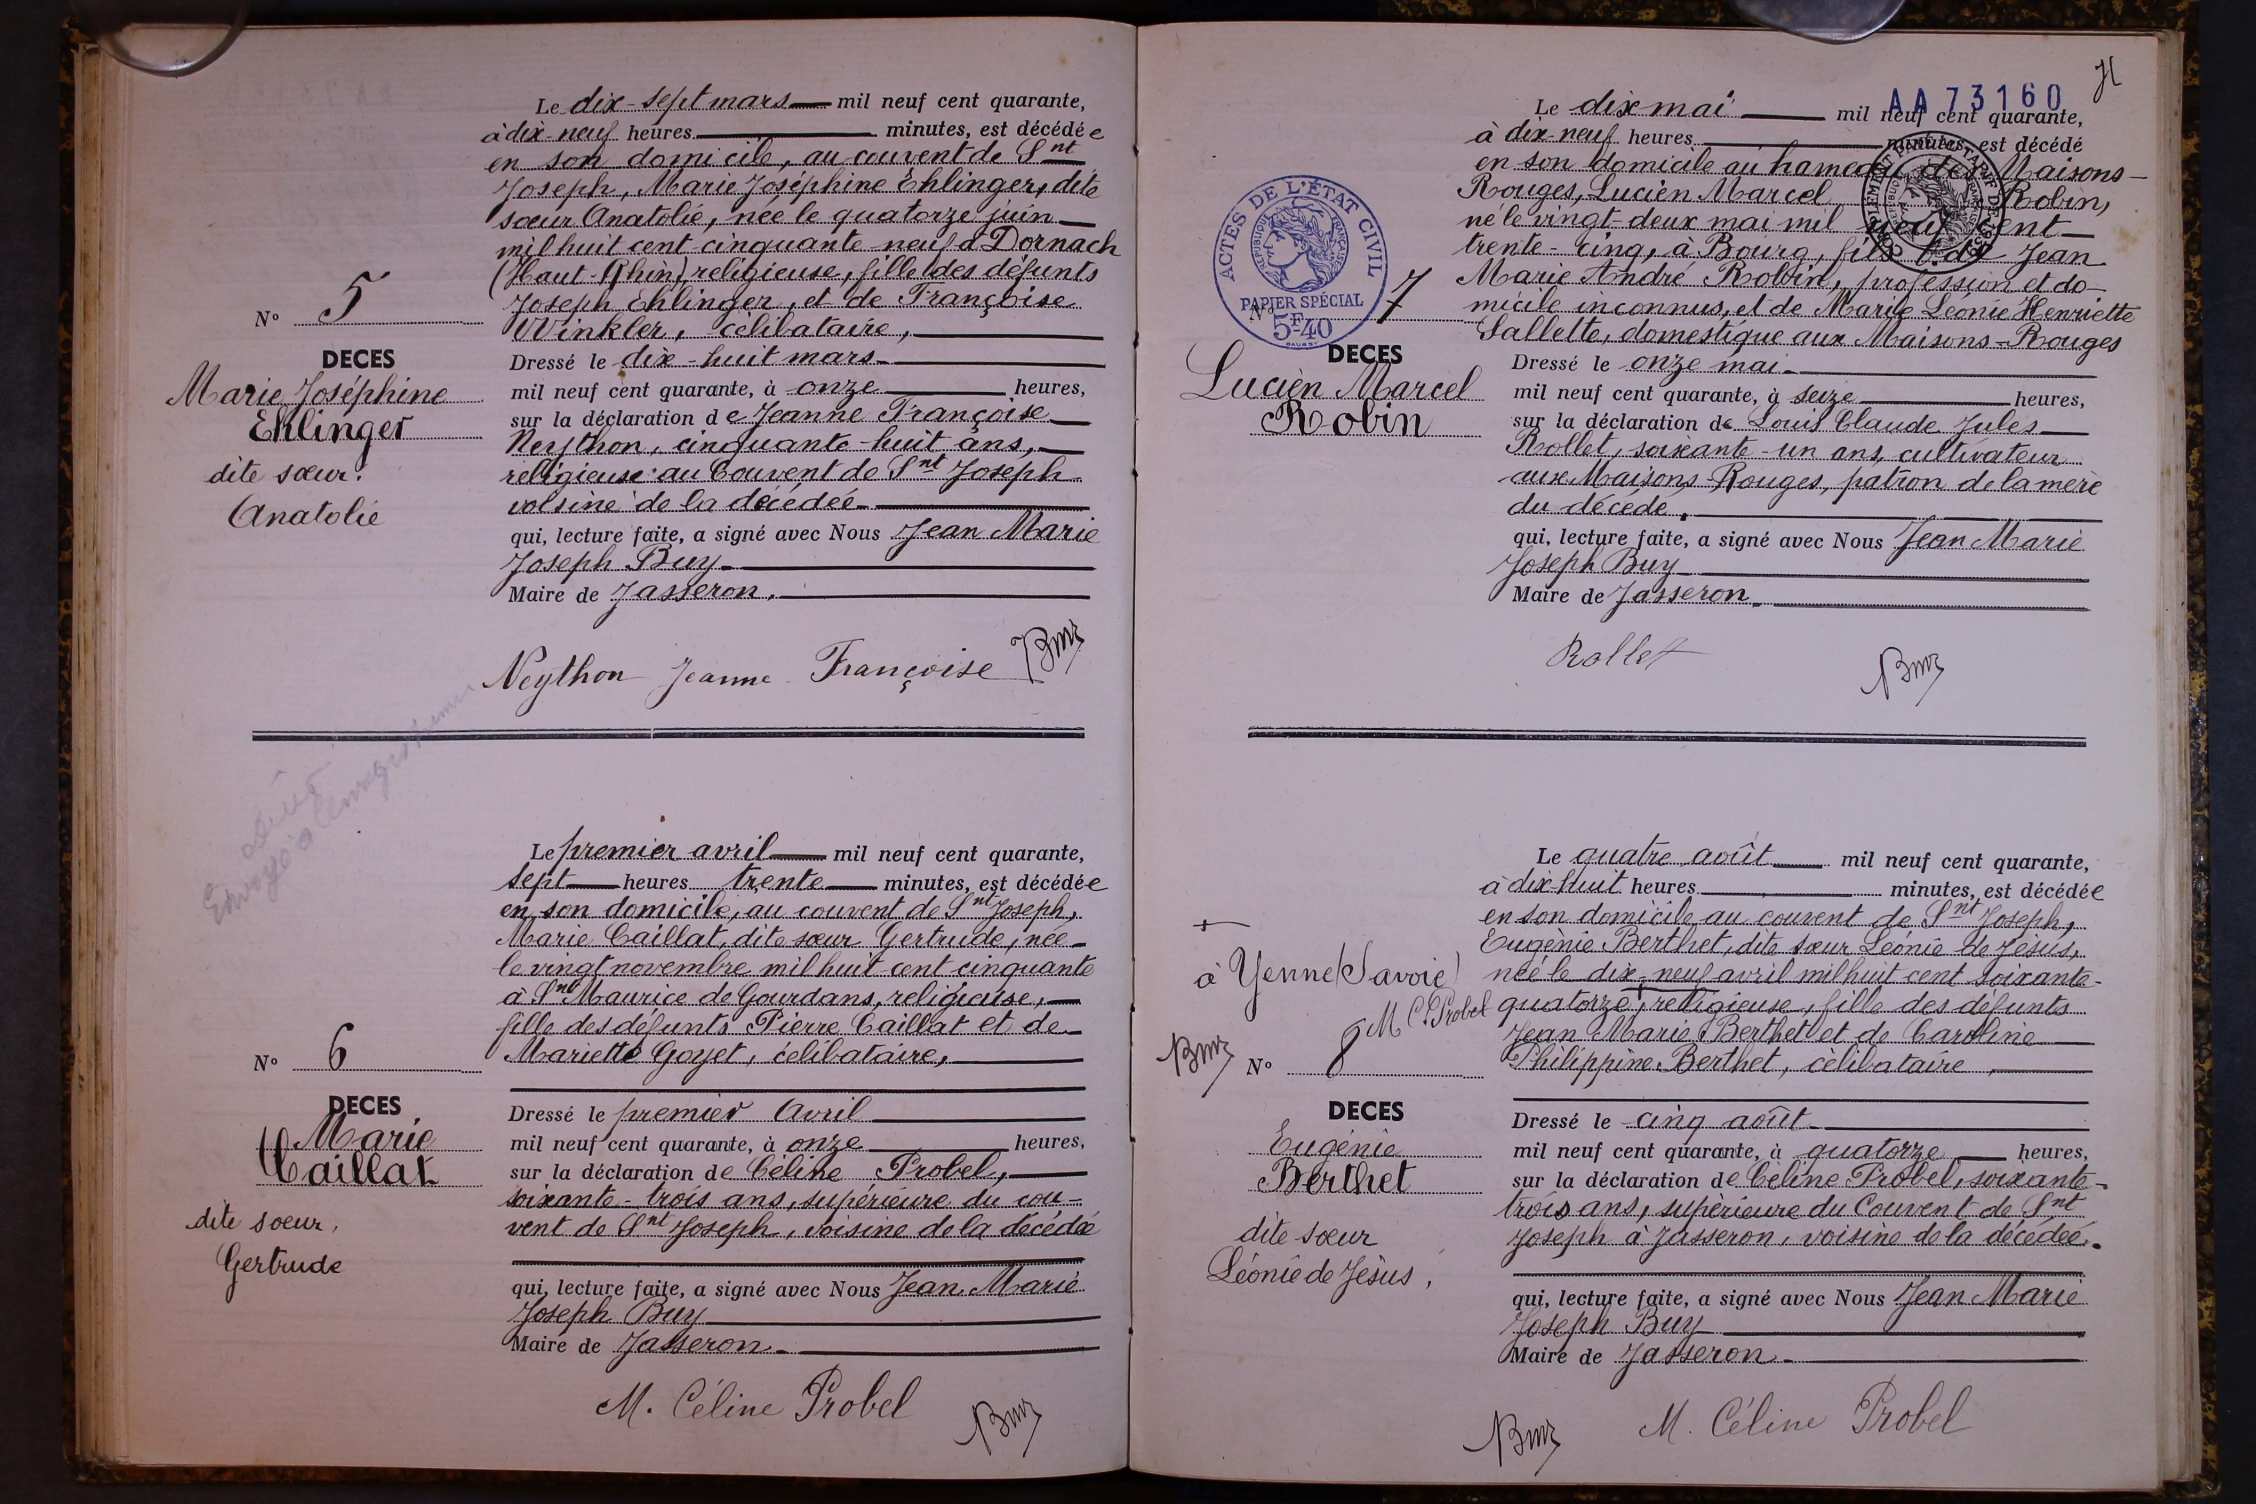 Le dix-sept mars mil neuf cent quarante,
à dix-neuf heures minutes, est décédée
en son domicile, au couvent de Snt
Joseph, Marie Joséphine Ehlinger, dite
sœur Anatolie, née le quatorze juin
mil huit cent cinquante-neuf à Dornach
(Haut-Rhin), religieuse, fille des défunts
Joseph Ehlinger, et de Françoise
Winkler, célibataire,
No 5
DECES
Marie Joséphine
Ehlinger
dite sœur
Anatolie
Dressé le dix-huit mars
mil neuf cent quarante, à onze heures,
sur la déclaration de Jeanne Françoise
Neython, cinquante-huit ans,
religieuse au Couvent de Snt Joseph
voisine de la décédée
qui, lecture faite, a signé avec Nous Jean Marie
Joseph Buy
Maire de Jasseron.
Neython Jeanne Françoise Buy
Envoyé à l'enregistrement
Le premier avril mil neuf cent quarante,
sept heures trente minutes, est décédée
en son domicile, au couvent de Snt Joseph,
Marie Caillat, dite sœur Gertrude, née
le vingt novembre mil huit cent cinquante
à Snt Maurice de Gourdans, religieuse,
fille des défunts Pierre Caillat et de
Mariette Goyet, célibataire,
No 6
DECES
Marie
Caillat
dite soeur,
Gertrude
Dressé le premier Avril
mil neuf cent quarante, à onze heures,
sur la déclaration de Céline Probel,
soixante-trois ans, supérieure du cou-
vent de Snt Joseph, voisine de la décédée
qui, lecture faite, a signé avec Nous Jean Marie
Joseph Buy
Maire de Jasseron
M. Céline Probel Buy
AA73160
Le dix mai mil neuf cent quarante,
à dix-neuf heures minutes, est décédé
en son domicile au hameau des Maisons-
Rouges, Lucien Marcel Robin,
né le vingt-deux mai mil neuf cent
trente-cinq, à Bourg, fils de Jean
Marie André Robin, profession et do-
micile inconnus, et de Marie Léonie Henriette
Sallette, domestique aux Maisons-Rouges
ACTES DE L'ÉTAT CIVIL
RÉPUBLIQUE FRANÇAISE
PAPIER SPÉCIAL
5F40
COMPLEMENT TARIF DE 193
No 7
DECES
Lucien Marcel
Robin
Dressé le onze mai
mil neuf cent quarante, à seize heures,
sur la déclaration de Louis Claude Jules
Rollet, soixante-un ans, cultivateur
aux Maisons-Rouges, patron de la mère
du décédé,
qui, lecture faite, a signé avec Nous Jean Marie
Joseph Buy
Maire de Jasseron
Rollet Buy
Le quatre août mil neuf cent quarante,
à dix-huit heures minutes, est décédée
en son domicile au couvent de Snt Joseph,
Eugénie Berthet, dite sœur Léonie de Jésus,
née le dix-neuf avril mil huit cent soixante-
quatorze, religieuse, fille des défunts
Jean Marie Berthet et de Caroline
Philippine Berthet, célibataire,
à Yenne (Savoie)
M C. Probel
Buy
No 8
DECES
Eugénie
Berthet
dite sœur
Léonie de Jésus,
Dressé le cinq août
mil neuf cent quarante, à quatorze heures,
sur la déclaration de Céline Probel, soixante-
trois ans, supérieure du Couvent de Snt
Joseph à Jasseron, voisine de la décédée.
qui, lecture faite, a signé avec Nous Jean Marie
Joseph Buy
Maire de Jasseron
Buy M. Céline Probel